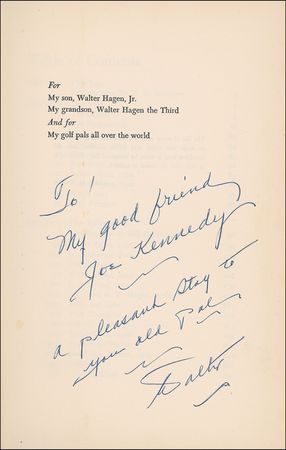 For
My son, Walter Hagen, Jr.
My grandson, Walter Hagen the Third
And for
My golf pals all over the world
To!
My good friend
Joe Kennedy
a pleasant stay to
you old Pal
Walter